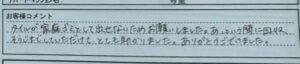 お客様コメント
タイルが家庭ゴミとして出せないためお願いしました。あっという間に回収、
そうじまでしていただけて、とても助かりました。ありがとうございました。